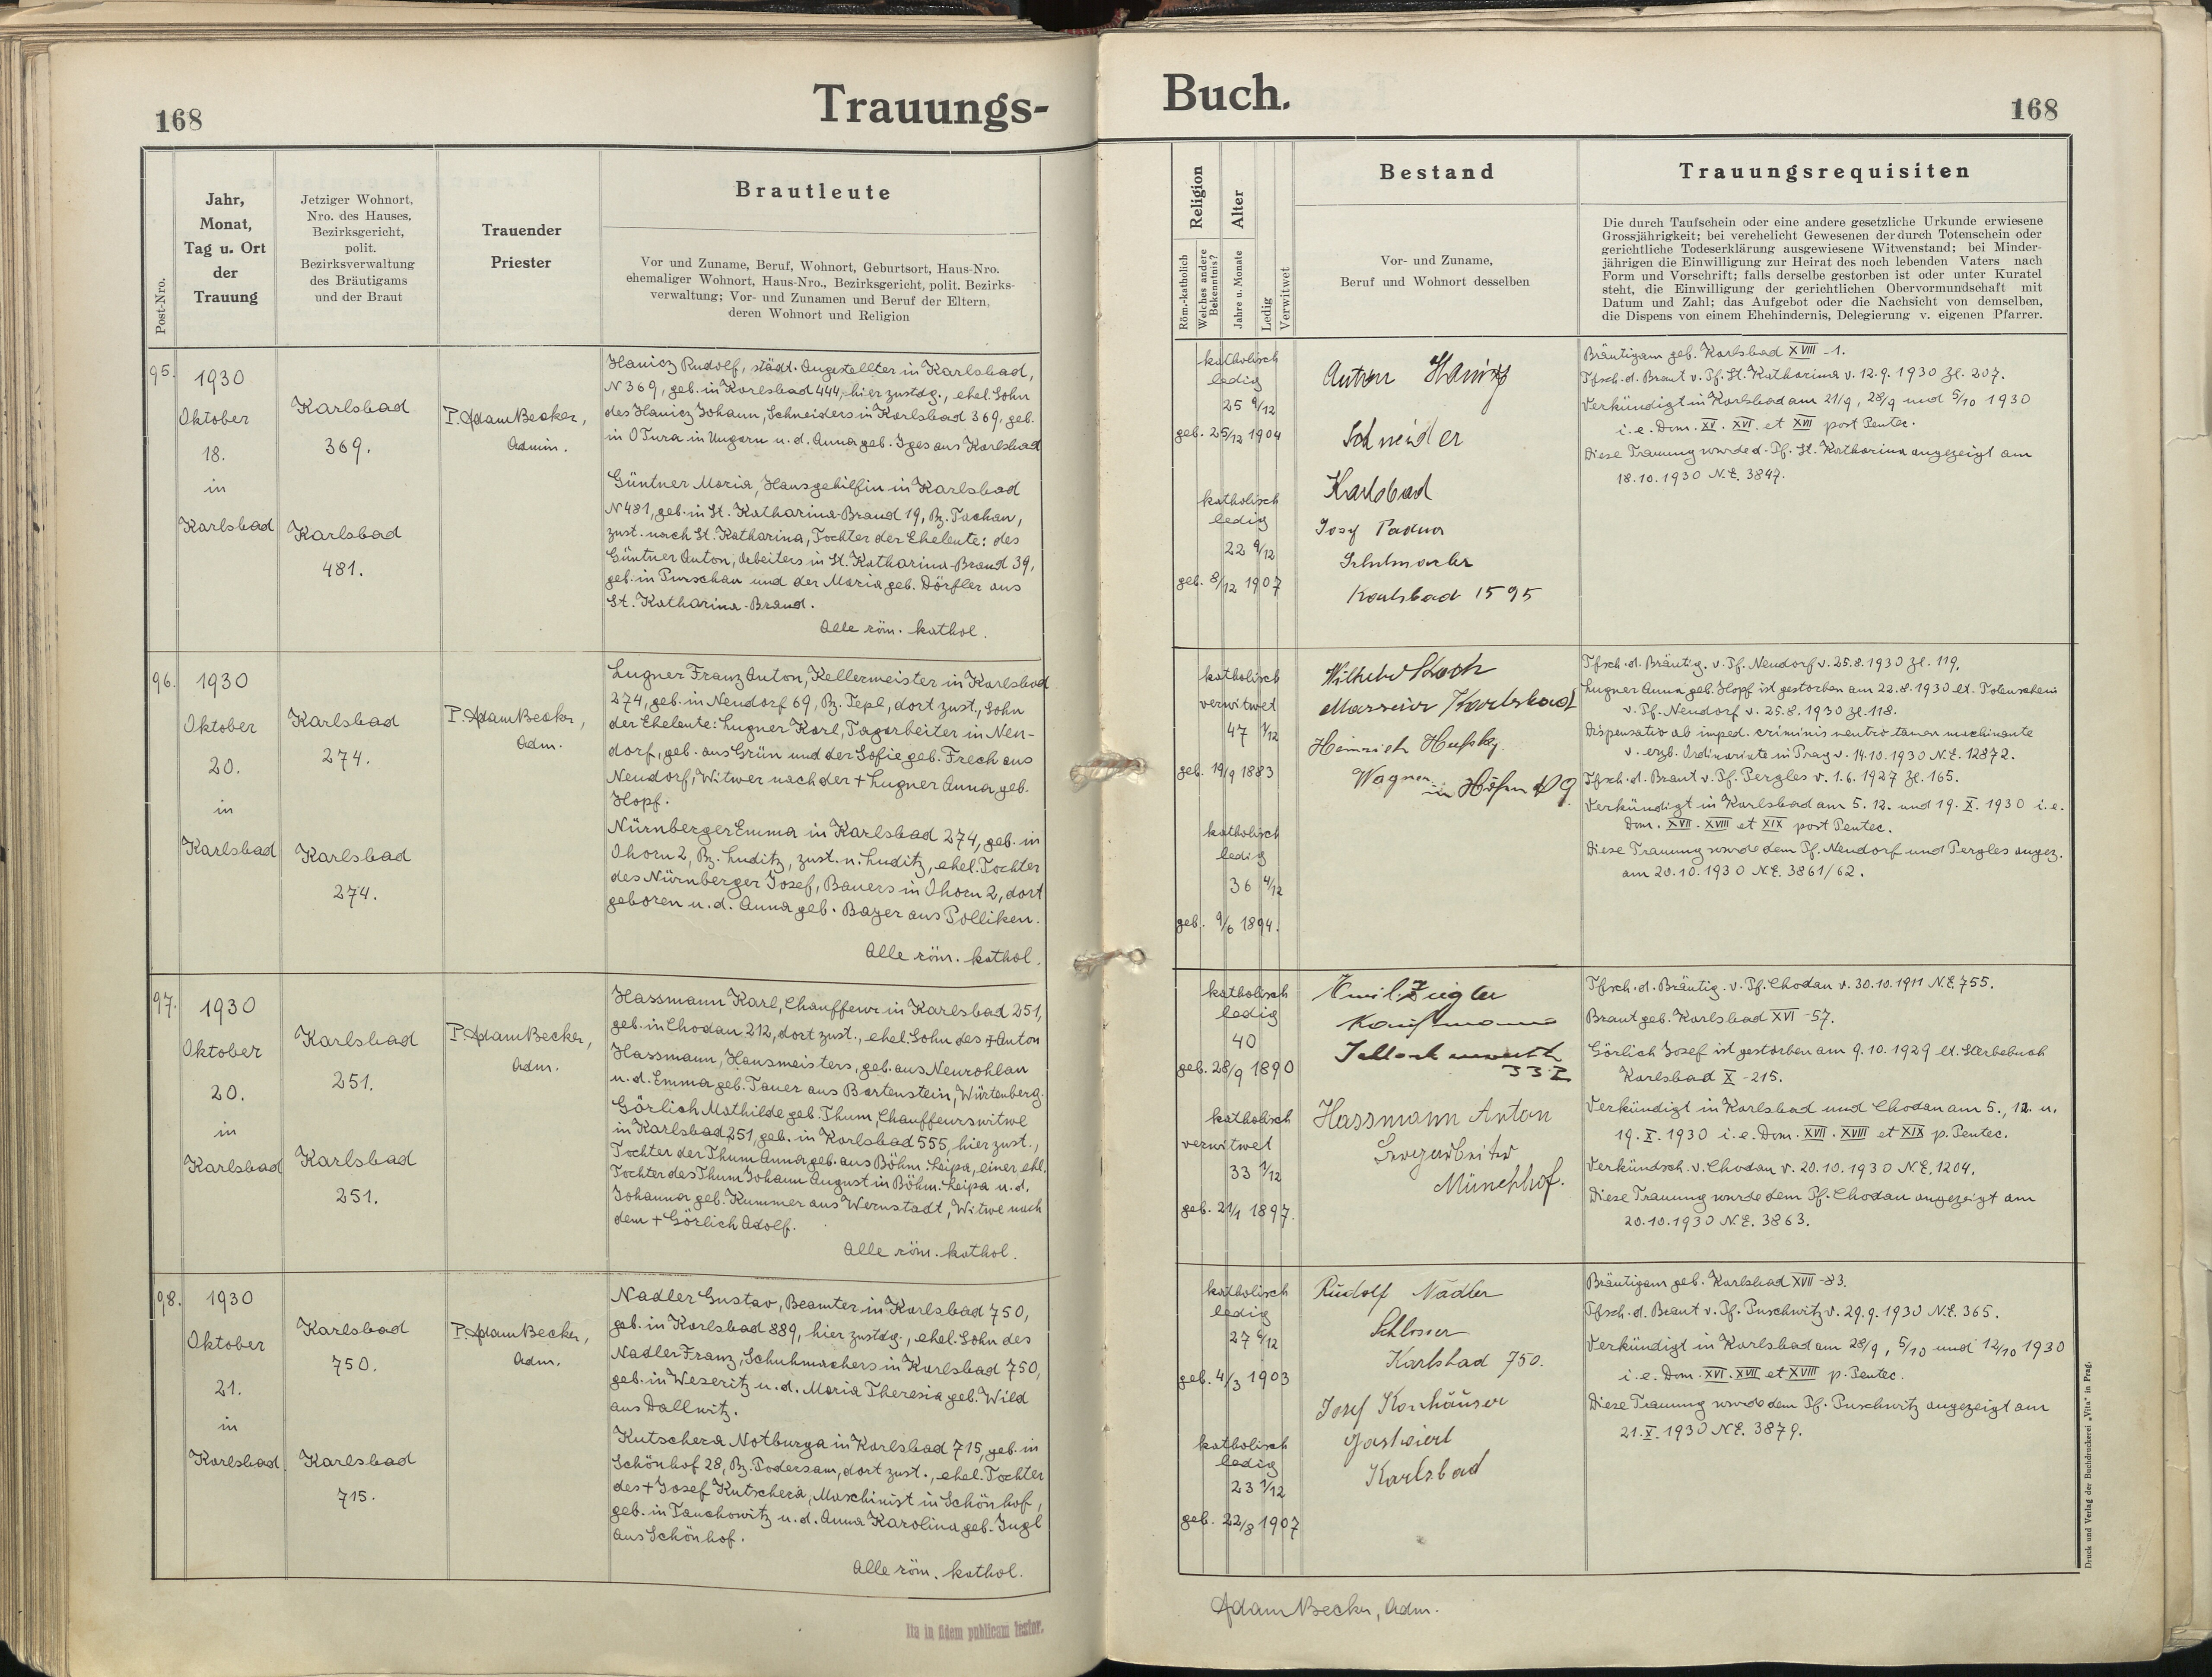 168
Trauungs-
Post-Nro.
Jahr,
Monat,
Tag u. Ort
der
Trauung
Jetziger Wohnort,
Nro. des Hauses,
Bezirksgericht,
polit.
Bezirksverwaltung
des Bräutigams
und der Braut
Trauender
Priester
Brautleute
Vor und Zuname, Beruf, Wohnort, Geburtsort, Haus-Nro.
ehemaliger Wohnort, Haus-Nro., Bezirksgericht, polit. Bezirks-
verwaltung; Vor- und Zunamen und Beruf der Eltern,
deren Wohnort und Religion
95.
1930
Oktober
18.
in
Karlsbad
Karlsbad
369.
Karlsbad
481.
P. Adam Becker,
Admin.
Hanicz Rudolf, städt. Angestellter in Karlsbad,
N 369, geb. in Karlsbad 444, hier zustdg., ehel. Sohn
des Hanicz Johann, Schneiders in Karlsbad 369, geb.
in O Tura in Ungarn u. d. Anna geb. Iges aus Karlsbad
Güntner Maria, Hausgehilfin in Karlsbad
N 481, geb. in St. Katharina-Brand 19, Bz. Tachau,
zust. nach St. Katharina, Tochter der Eheleute: des
Güntner Anton, Arbeiters in St. Katharina-Brand 39,
geb. in Purschau und der Maria geb. Dörfler aus
St. Katharina-Brand.
Alle röm. kathol.
96.
1930
Oktober
20.
in
Karlsbad
Karlsbad
274.
Karlsbad
274.
P. Adam Becker,
Adm.
Lugner Franz Anton, Kellermeister in Karlsbad
274, geb. in Neudorf 69, Bz. Tepl, dort zust., Sohn
der Eheleute: Lugner Karl, Tagarbeiter in Neu-
dorf, geb. aus Grün und der Sofie geb. Frech aus
Neudorf, Witwer nach der + Lugner Anna geb.
Hopf.
Nürnberger Emma in Karlsbad 274, geb. in
Ohorn 2, Bz. Luditz, zust. n. Luditz, ehel. Tochter
des Nürnberger Josef, Bauers in Ohorn 2, dort
geboren u. d. Anna geb. Bayer aus Polliken.
Alle röm. kathol.
97.
1930
Oktober
20.
in
Karlsbad
Karlsbad
251.
Karlsbad
251.
P. Adam Becker,
Adm.
Hassmann Karl, Chauffeur in Karlsbad 251,
geb. in Chodau 212, dort zust., ehel. Sohn des + Anton
Hassmann, Hausmeisters, geb. aus Neurohlau
u. d. Emma geb. Tauer aus Bartenstein, Würtenberg.
Görlich Mathilde geb. Thum, Chauffeurswitwe
in Karlsbad 251, geb. in Karlsbad 555, hier zust.,
Tochter der Thum Anna geb. aus Böhm. Leipa, einer ehl.
Tochter des Thum Johann August in Böhm. Leipa u. d.
Johanna geb. Kummer aus Wernstadt, Witwe nach
dem + Görlich Adolf.
Alle röm. kathol.
98.
1930
Oktober
21.
in
Karlsbad
Karlsbad
750.
Karlsbad
715.
P. Adam Becker,
Adm.
Nadler Gustav, Beamter in Karlsbad 750,
geb. in Karlsbad 889, hier zustdg., ehel. Sohn des
Nadler Franz, Schuhmachers in Karlsbad 750,
geb. in Weseritz u. d. Maria Theresia geb. Wild
aus Dallwitz.
Kutschera Notburga in Karlsbad 715, geb. in
Schönhof 28, Bz. Podersam, dort zust., ehel. Tochter
des + Josef Kutschera, Maschinist in Schönhof,
geb. in Tauchowitz u. d. Anna Karolina geb. Jugl
aus Schönhof.
Alle röm. kathol.
Ita in fidem publicam testor.
Buch.
168
Religion
Röm.-katholisch
Welches andere
Bekenntnis?
Alter
Jahre u. Monate
Ledig
Verwitwet
Bestand
Vor- und Zuname,
Beruf und Wohnort desselben
Trauungsrequisiten
Die durch Taufschein oder eine andere gesetzliche Urkunde erwiesene
Grossjährigkeit; bei verehelicht Gewesenen der durch Totenschein oder
gerichtliche Todeserklärung ausgewiesene Witwenstand; bei Minder-
jährigen die Einwilligung zur Heirat des noch lebenden Vaters nach
Form und Vorschrift; falls derselbe gestorben ist oder unter Kuratel
steht, die Einwilligung der gerichtlichen Obervormundschaft mit
Datum und Zahl; das Aufgebot oder die Nachsicht von demselben,
die Dispens von einem Ehehindernis, Delegierung v. eigenen Pfarrer.
katholisch
ledig
25 9/12
geb. 25/12 1904
katholisch
ledig
22 9/12
geb. 8/12 1907
Anton Hanicz
Schneider
Karlsbad
Josef
Schuhmacher
Karlsbad 1595
Bräutigam geb. Karlsbad XVIII - 1.
Tfsch. d. Braut v. Pf. St. Katharina v. 12.9.1930 Zl. 207.
Verkündigt in Karlsbad am 21/9, 28/9 und 5/10 1930
i. e. Dom. XV. XVI. et XVII post Pentec.
Diese Trauung wurde d. Pf. St. Katharina angezeigt am
18.10.1930 N.E. 3847.
katholisch
verwitwet
47 1/12
geb. 19/9 1883
katholisch
ledig
36 4/12
geb. 9/6 1894.
Wilhelm Koch
Masseur Karlsbad
Heinrich
Wagner in Höfen N 9
Tfsch. d. Bräutig. v. Pf. Neudorf v. 25.8.1930 Zl. 119.
Lugner Anna geb. Hopf ist gestorben am 22.8.1930 lt. Totenschein
v. Pf. Neudorf v. 25.8.1930 Zl. 118.
Dispensatio ab imped. criminis neutro tamen machinante
v. erzb. Ordinariate in Prag v. 14.10.1930 N.E. 12872.
Tfsch. d. Braut v. Pf. Pergles v. 1.6.1927 Zl. 165.
Verkündigt in Karlsbad am 5. 12. und 19. X. 1930 i. e.
Dom. XVII. XVIII et XIX post Pentec.
Diese Trauung wurde dem Pf. Neudorf und Pergles angez.
am 20.10.1930 N.E. 3861/62.
katholisch
ledig
40
geb. 28/9 1890
katholisch
verwitwet
33 1/12
geb. 21/1 1897.
Emil Ziegler
Kaufmann
33 I
Hassmann Anton
Münchhof.
Tfsch. d. Bräutig. v. Pf. Chodau v. 30.10.1911 N.E. 755.
Braut geb. Karlsbad XVI - 57.
Görlich Josef ist gestorben am 9.10.1929 lt. Sterbebuch
Karlsbad X - 215.
Verkündigt in Karlsbad und Chodau am 5., 12. u.
19. X. 1930 i. e. Dom. XVII. XVIII et XIX p. Pentec.
Verkündsch. v. Chodau v. 20.10.1930 N.E. 1204.
Diese Trauung wurde dem Pf. Chodau angezeigt am
20.10.1930 N.E. 3863.
katholisch
ledig
27 6/12
geb. 4/3 1903
katholisch
ledig
23 1/12
geb. 22/8 1907
Rudolf Nadler
Schlosser
Karlsbad 750.
Josef Konhäuser
Gastwirt
Karlsbad
Bräutigam geb. Karlsbad XVII - 83.
Tfsch. d. Braut v. Pf. Puschwitz v. 29.9.1930 N.E. 365.
Verkündigt in Karlsbad am 28/9, 5/10 und 12/10 1930
i. e. Dom. XVI. XVII et XVIII p. Pentec.
Diese Trauung wurde dem Pf. Puschwitz angezeigt am
21. X. 1930 N.E. 3879.
Adam Becker, Adm.
Druck und Verlag der Buchdruckerei „Vita" in Prag.